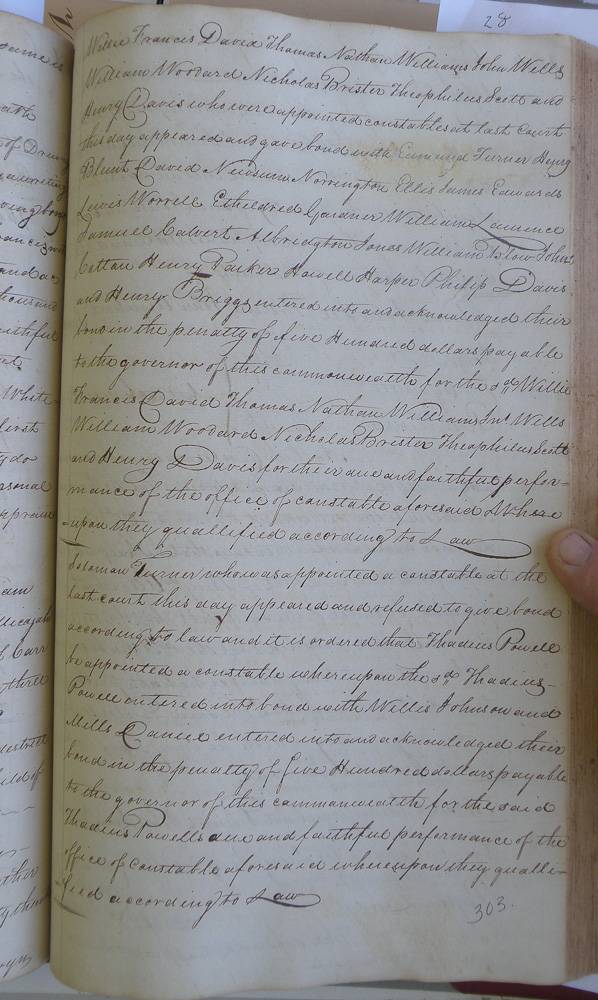 28
Willie Francis David Thomas Nathan Williams John Wells
William Woodard Nicholas Brister Theophilus Scott and
Henry Davis who were appointed constables at last Court
this day appeared and gave bond with Turner Henry
Blunt David Newsum Norrington Ellis James Edwards
Lewis Worrell Etheldred Gardner William Laurence
Samuel Calvert Albridgton Jones William Blow John
Cotton Henry Parker Howell Harper Philip Davis
and Henry Briggs entered into and acknowledged their
bond in the penalty of five Hundred dollars payable
to the governor of this commonwealth for the sd. Willie
Francis David Thomas Nathan Williams Jno. Wells
William Woodard Nicholas Brister Theophilus Scott
and Henry Davis for their due and faithful perfor-
mance of the office of constable aforesaid Where
=upon they quallified according to Law
Soloman Turner who was appointed a constable at the
last court this day appeared and refused to give bond
according to law and it is ordered that Thadeus Powell
be appointed a constable whereupon the sd. Thadeus
Powell entered into bond with Willis Johnson and
Mills Daniel entered into and acknowledged their
bond in the penalty of five Hundred dollars payable
to the governor of this commonwealth for the said
Thadeus Powells due and faithful performance of the
office of constable aforesaid whereupon they qualli-
=fied according to Law
303.